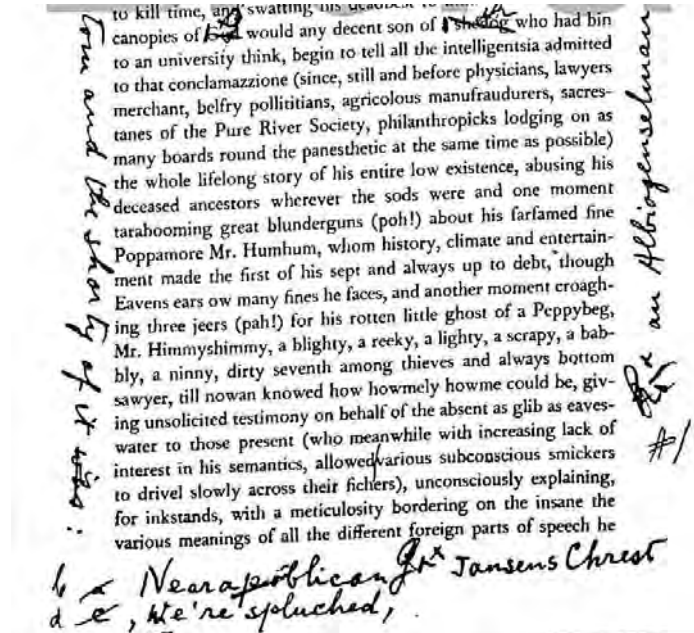 to kill time, and swatting his
canopies of would any decent son of who had bin
to an university think, begin to tell all the intelligentsia admitted
to that conclamazzione (since, still and before physicians, lawyers
merchant, belfry pollititians, agricolous manufraudurers, sacres-
tanes of the Pure River Society, philanthropicks lodging on as
many boards round the panesthetic at the same time as possible)
the whole lifelong story of his entire low existence, abusing his
deceased ancestors wherever the sods were and one moment
tarabooming great blunderguns (poh!) about his farfamed fine
Poppamore Mr. Humhum, whom history, climate and entertain-
ment made the first of his sept and always up to debt, though
Eavens ears ow many fines he faces, and another moment croagh-
ing three jeers (pah!) for his rotten little ghost of a Peppybeg,
Mr. Himmyshimmy, a blighty, a reeky, a lighty, a scrapy, a bab-
bly, a ninny, dirty seventh among thieves and always bottom
sawyer, till nowan knowed how howmely howme could be, giv-
ing unsolicited testimony on behalf of the absent as glib as eaves-
water to those present (who meanwhile with increasing lack of
interest in his semantics, allowed various subconscious smickers
to drivel slowly across their fichers), unconsciously explaining,
for inkstands, with a meticulosity bordering on the insane the
various meanings of all the different foreign parts of speech he
and the shorty of it was:
an Albiogenselman
#/
Nearapoblican Jansens Chrest
, We're spluched,